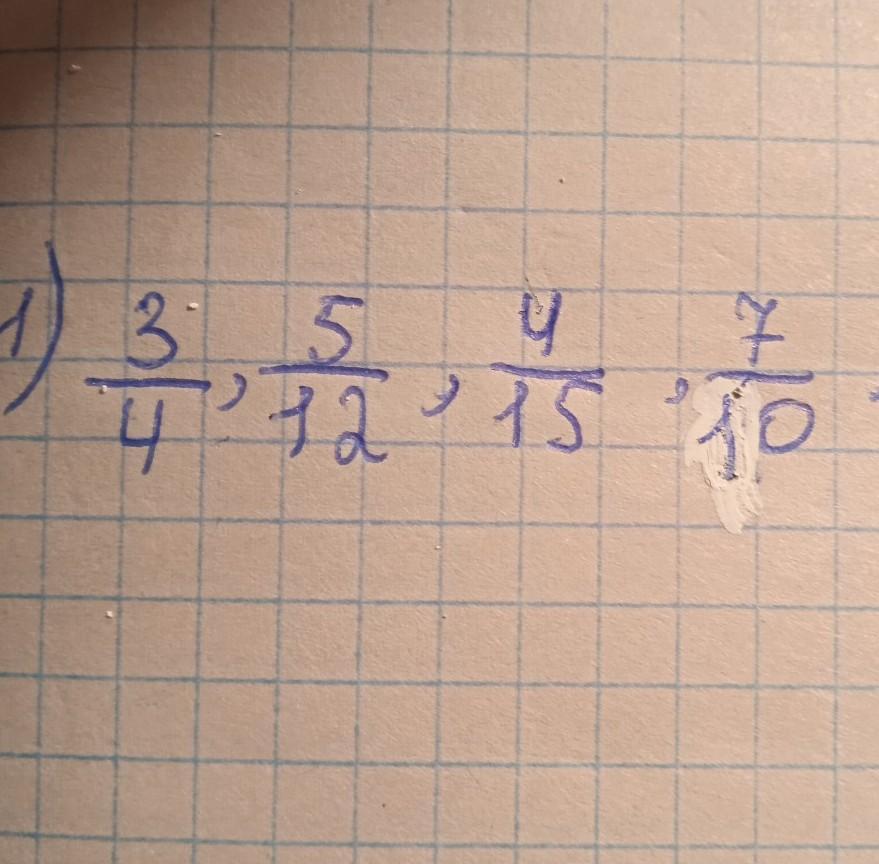 1) 3/4, 5/12, 4/15, 7/10.